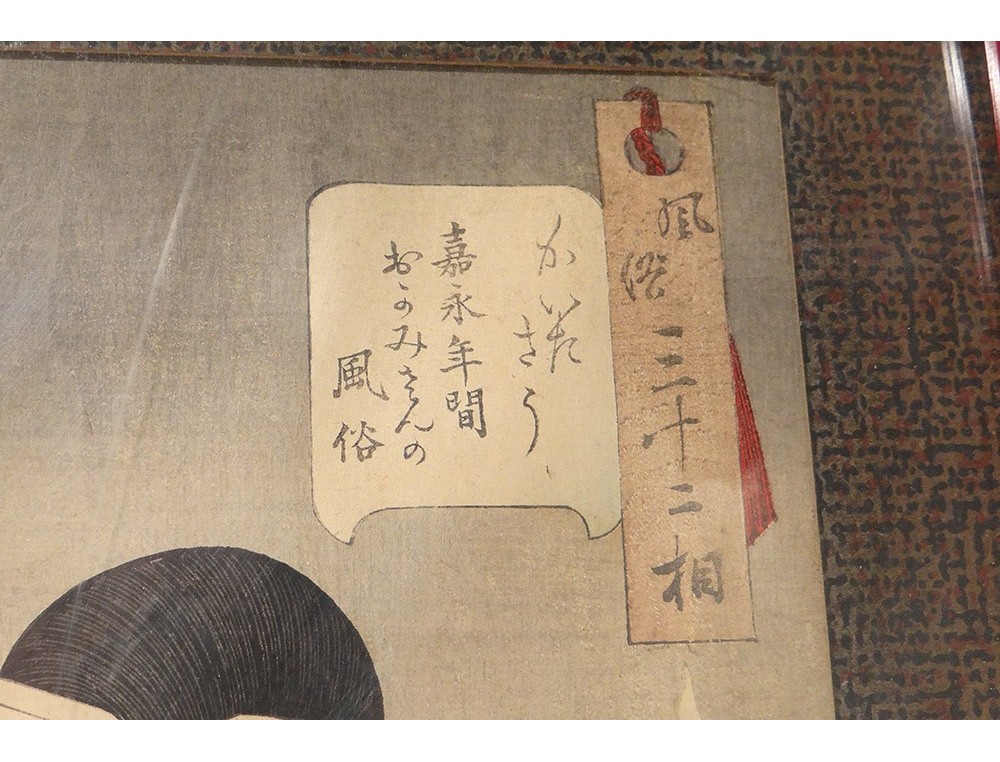 風俗三十二相
かいたさう
嘉永年間
おかみさんの
風俗